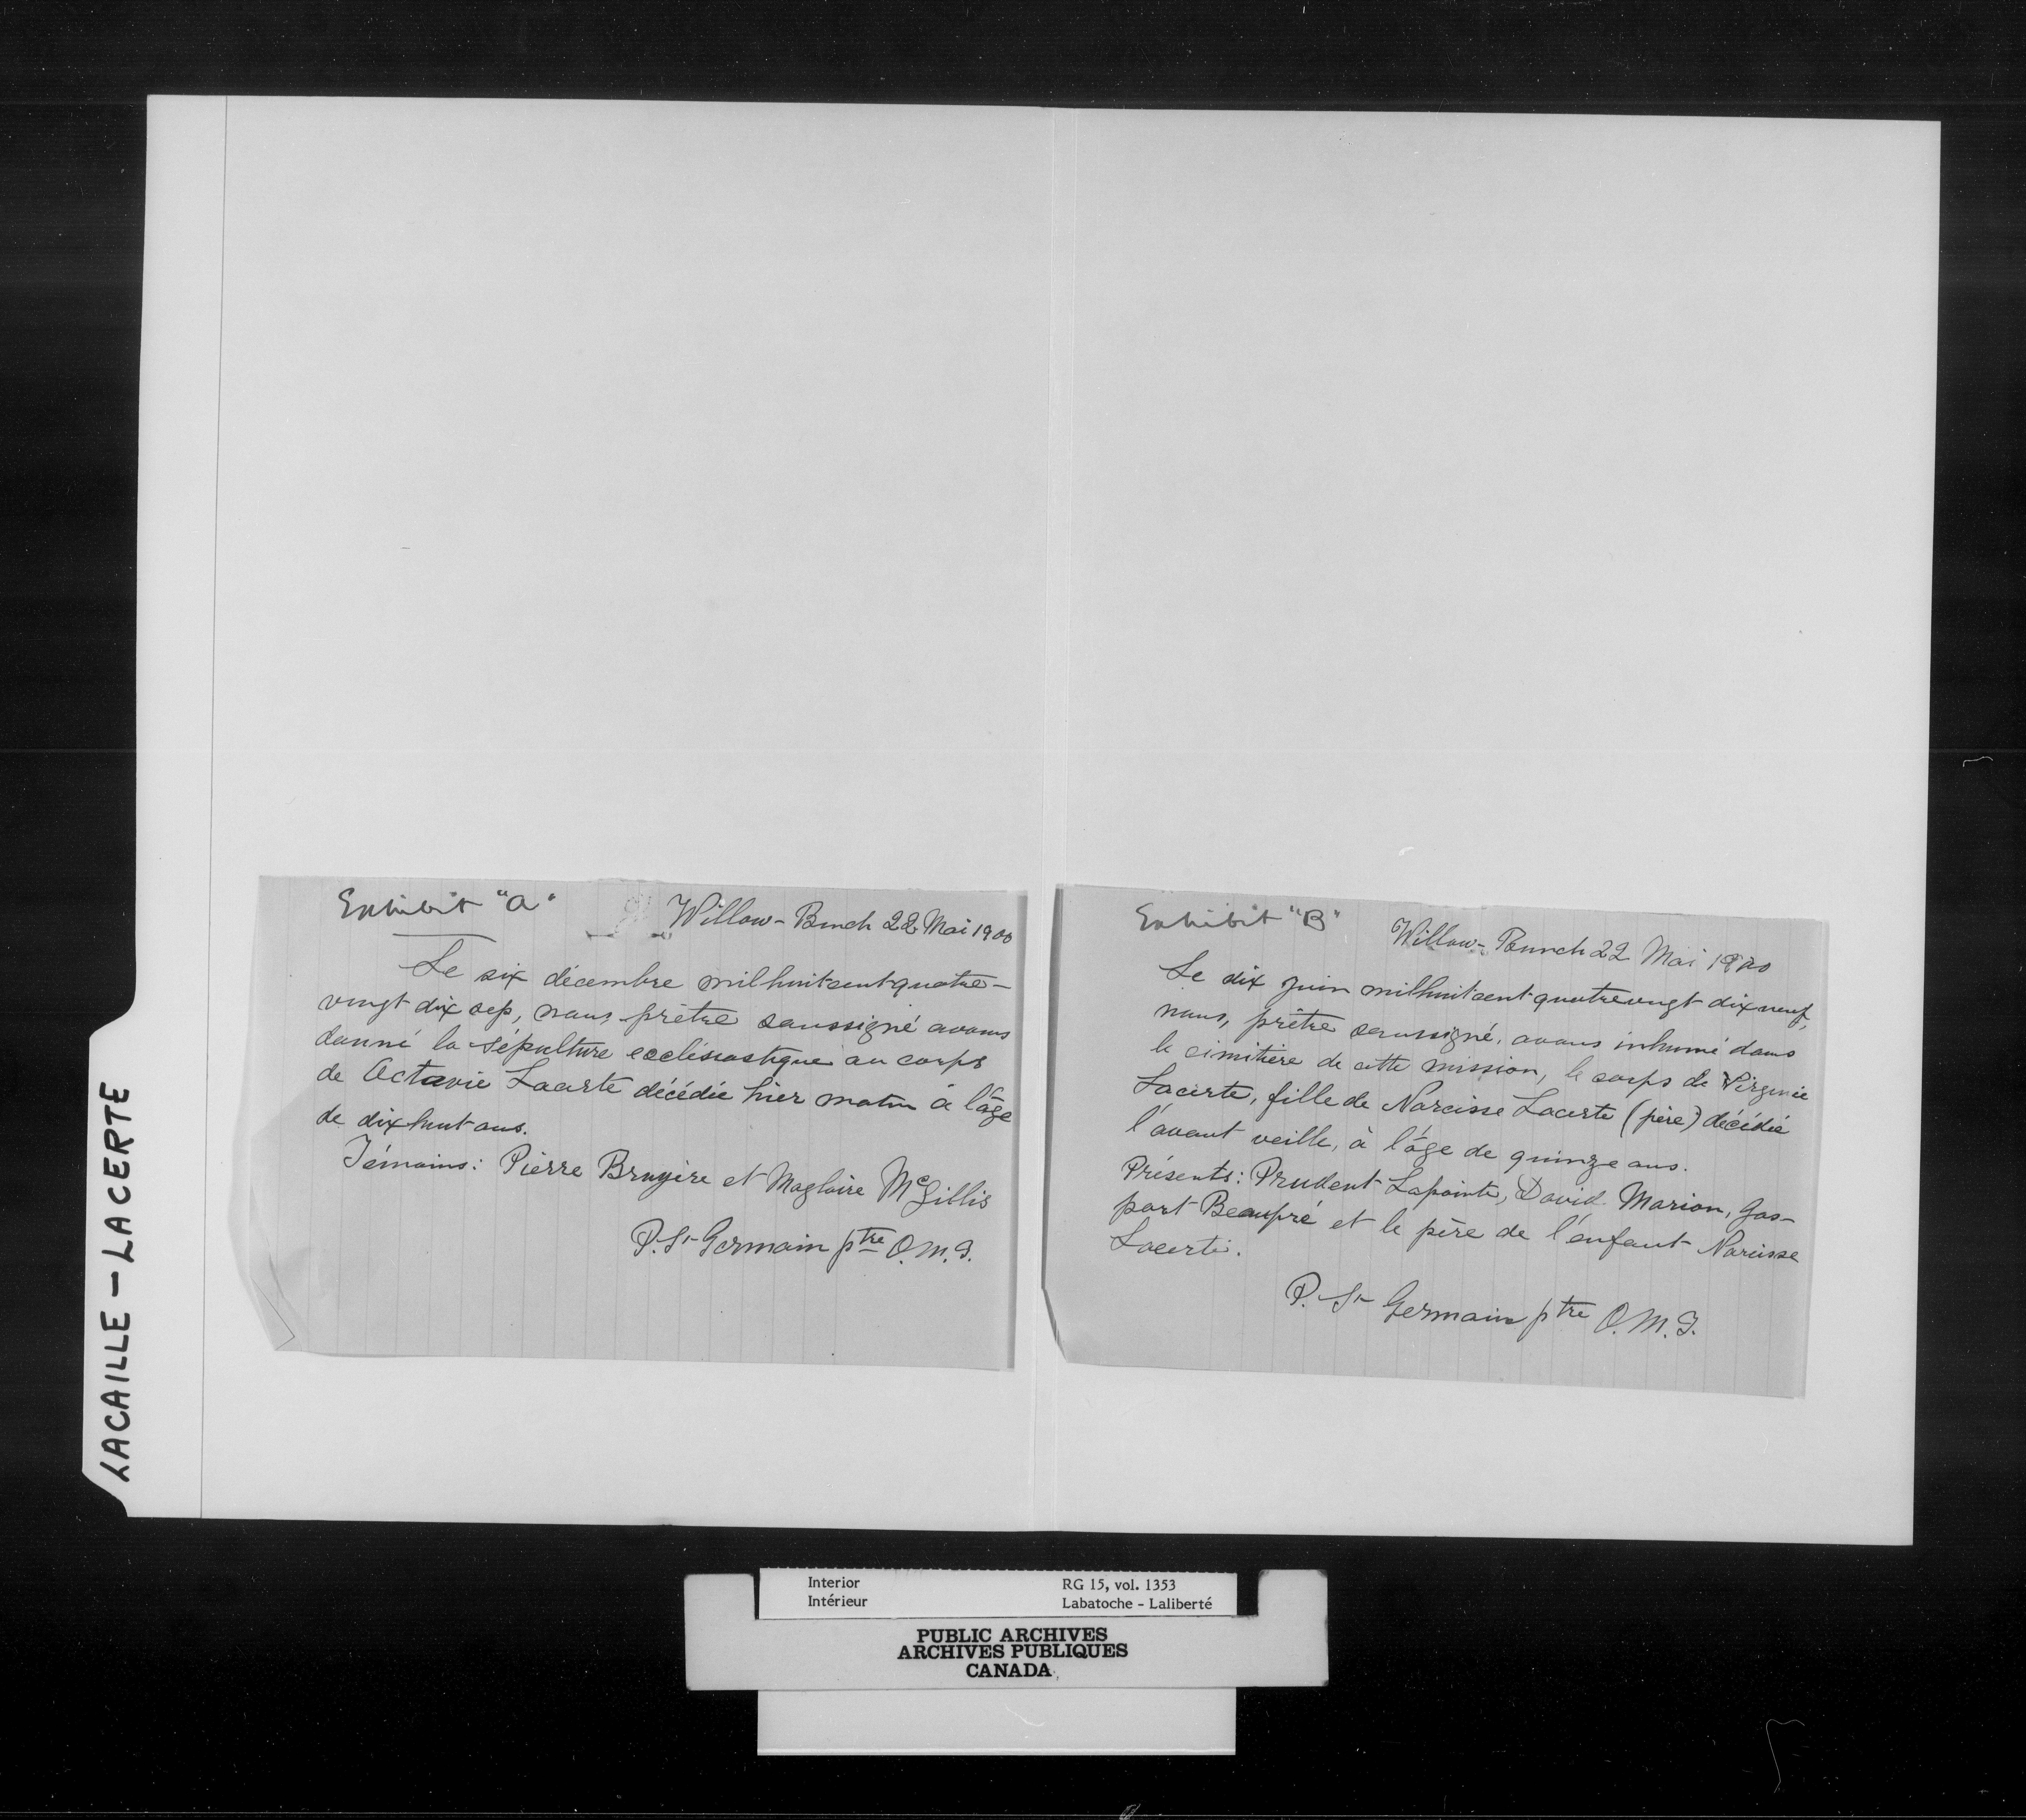 LACAILLE - LACERTE
Exhibit "A"
Willow-Bunch 22 Mai 1900
Le six décembre milhuitcentquatre-
vingt dix sep, nous, prêtre soussigné avons
donné la sépulture ecclésiastique au corps
de Octavie Lacerte décédée hier matin à l'âge
de dixhuit ans.
Témoins: Pierre Bruyère et Magloire McGillis
P. St Germain ptre O.M.I.
Exhibit "B"
Willow-Bunch 22 Mai 1900
Le dix juin milhuitcentquatrevingt dixneuf,
nous, prêtre soussigné, avons inhumé dans
le cimitière de cette mission, le corps de Virginie
Lacerte, fille de Narcisse Lacerte (père) décédée
l'avant veille, à l'âge de quinze ans.
Présents: Prudent Lapointe, David Marion, Gas-
part Beaupré et le père de l'enfant Narcisse
Lacerte.
P. St Germain ptre O.M.I.
Interior RG 15, vol. 1353
Intérieur Labatoche - Laliberté
PUBLIC ARCHIVES
ARCHIVES PUBLIQUES
CANADA